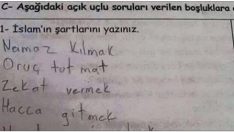 C- Aşağıdaki açık uçlu soruları verilen boşluklara
1- İslam'ın şartlarını yazınız.
Namaz Kılmak
Oruç tutmat
Zekat vermek
Hacca gitmek